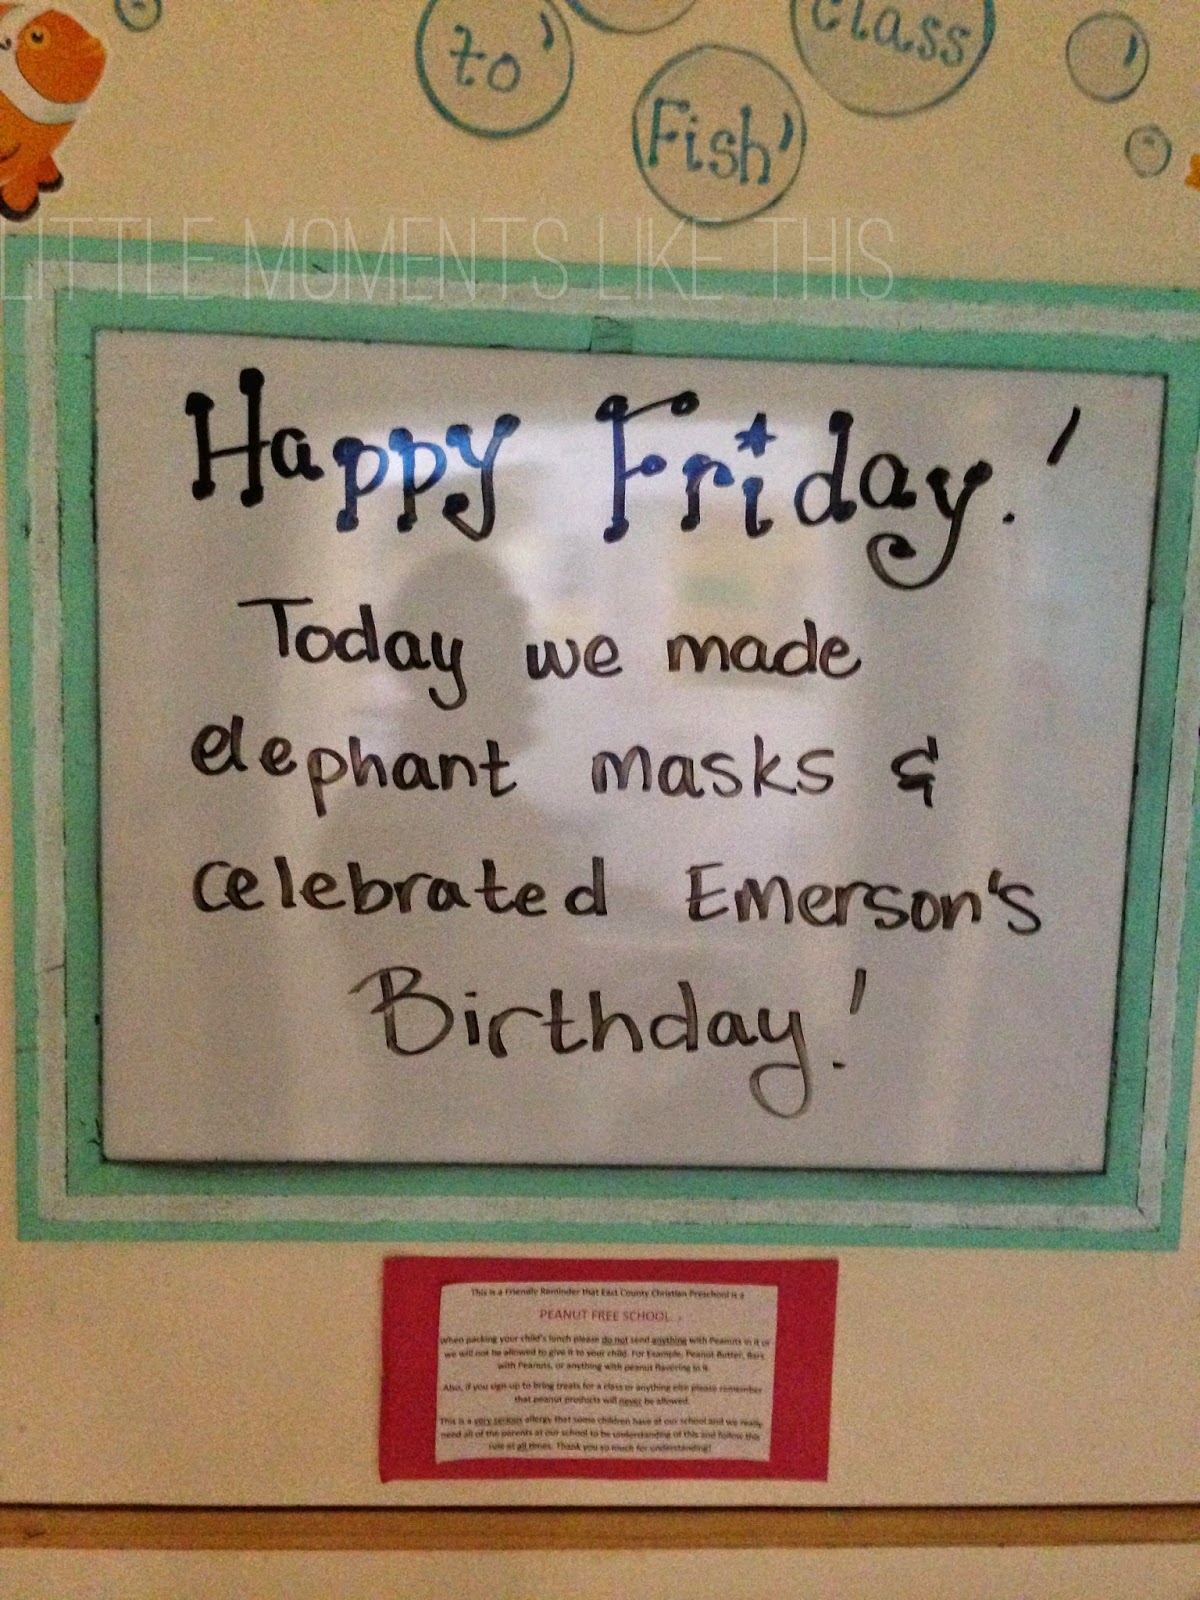 class
to'
Fish'
LITTLE MOMENTS LIKE THIS
Happy Friday!
Today we made
elephant masks &
celebrated Emerson's
Birthday!
This is a Friendly Reminder that East County Christian Preschool is a
PEANUT FREE SCHOOL.
When packing your child's lunch please do not send anything with Peanuts in it or
we will not be allowed to give it to your child. For Example, Peanut Butter, Bars
with Peanuts, or anything with peanut flavoring in it.
Also, if you sign up to bring treats for a class or anything else please remember
that peanut products will never be allowed.
This is a very serious allergy that some children have at our school and we really
need all of the parents at our school to be understanding of this and follow this
rule at all times. Thank you so much for understanding!